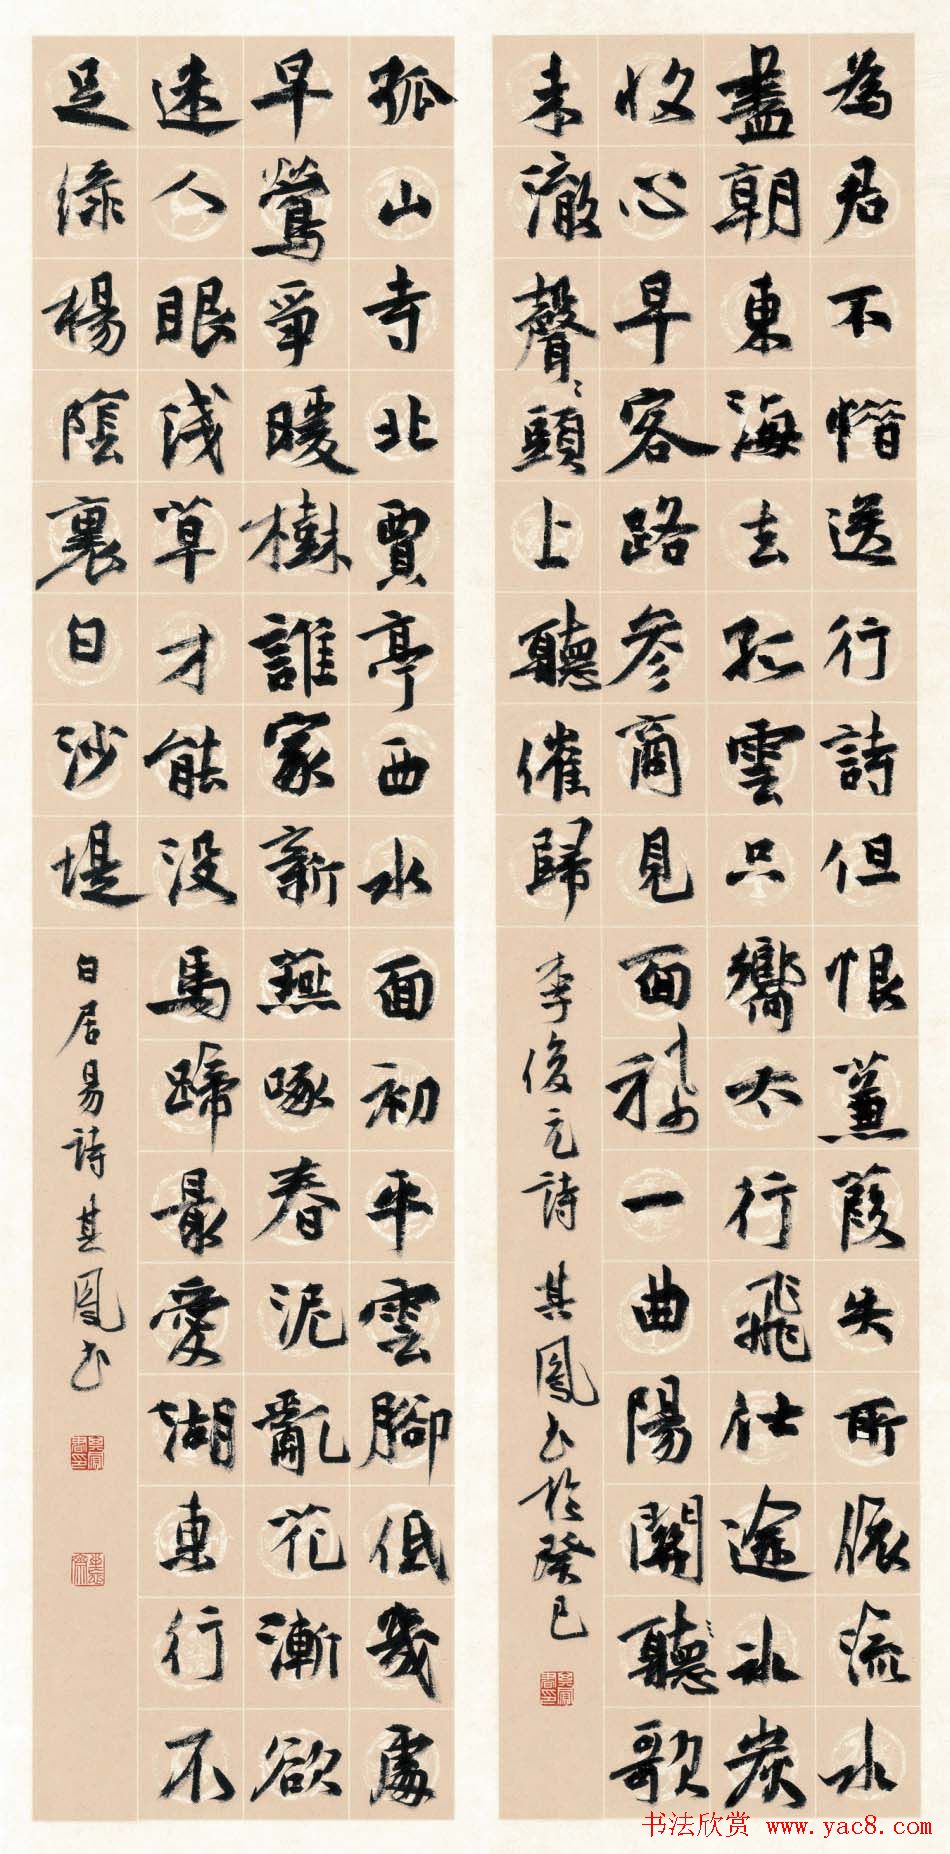 為君不惜送行詩但恨蒹葭失所依流水
盡朝東海去孤雲只嚮太行飛仕途冰炭
收心早客路參商見面稀一曲陽關聽〻歌
未徹聲〻頭上聽催歸
李俊民詩 其鳳書於癸巳
孤山寺北賈亭西水面初平雲腳低幾處
早鶯爭暖樹誰家新燕啄春泥亂花漸欲
迷人眼淺草才能没馬蹄最愛湖東行不
足綠楊陰裏白沙堤
白居易詩其鳳書
书法欣赏 www.yac8.com